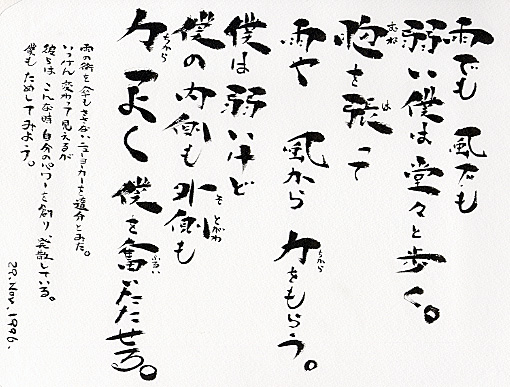 雨でも 風でも
弱い僕は堂々と歩く。
むね は
胸を張って
ちから
雨や 風から 力をもらう。
僕は弱いけど
そとがわ
僕の内側も外側も
ちから ふる
力 く 僕を奮いたたせる。
雨の街を傘もささないニューヨーカーを随分とみた。
いっけん変わって見えるが
彼らは こんな時 自分の心パワーを創り、発散している。
僕も ためしてみよう。
29.Nov.1996.